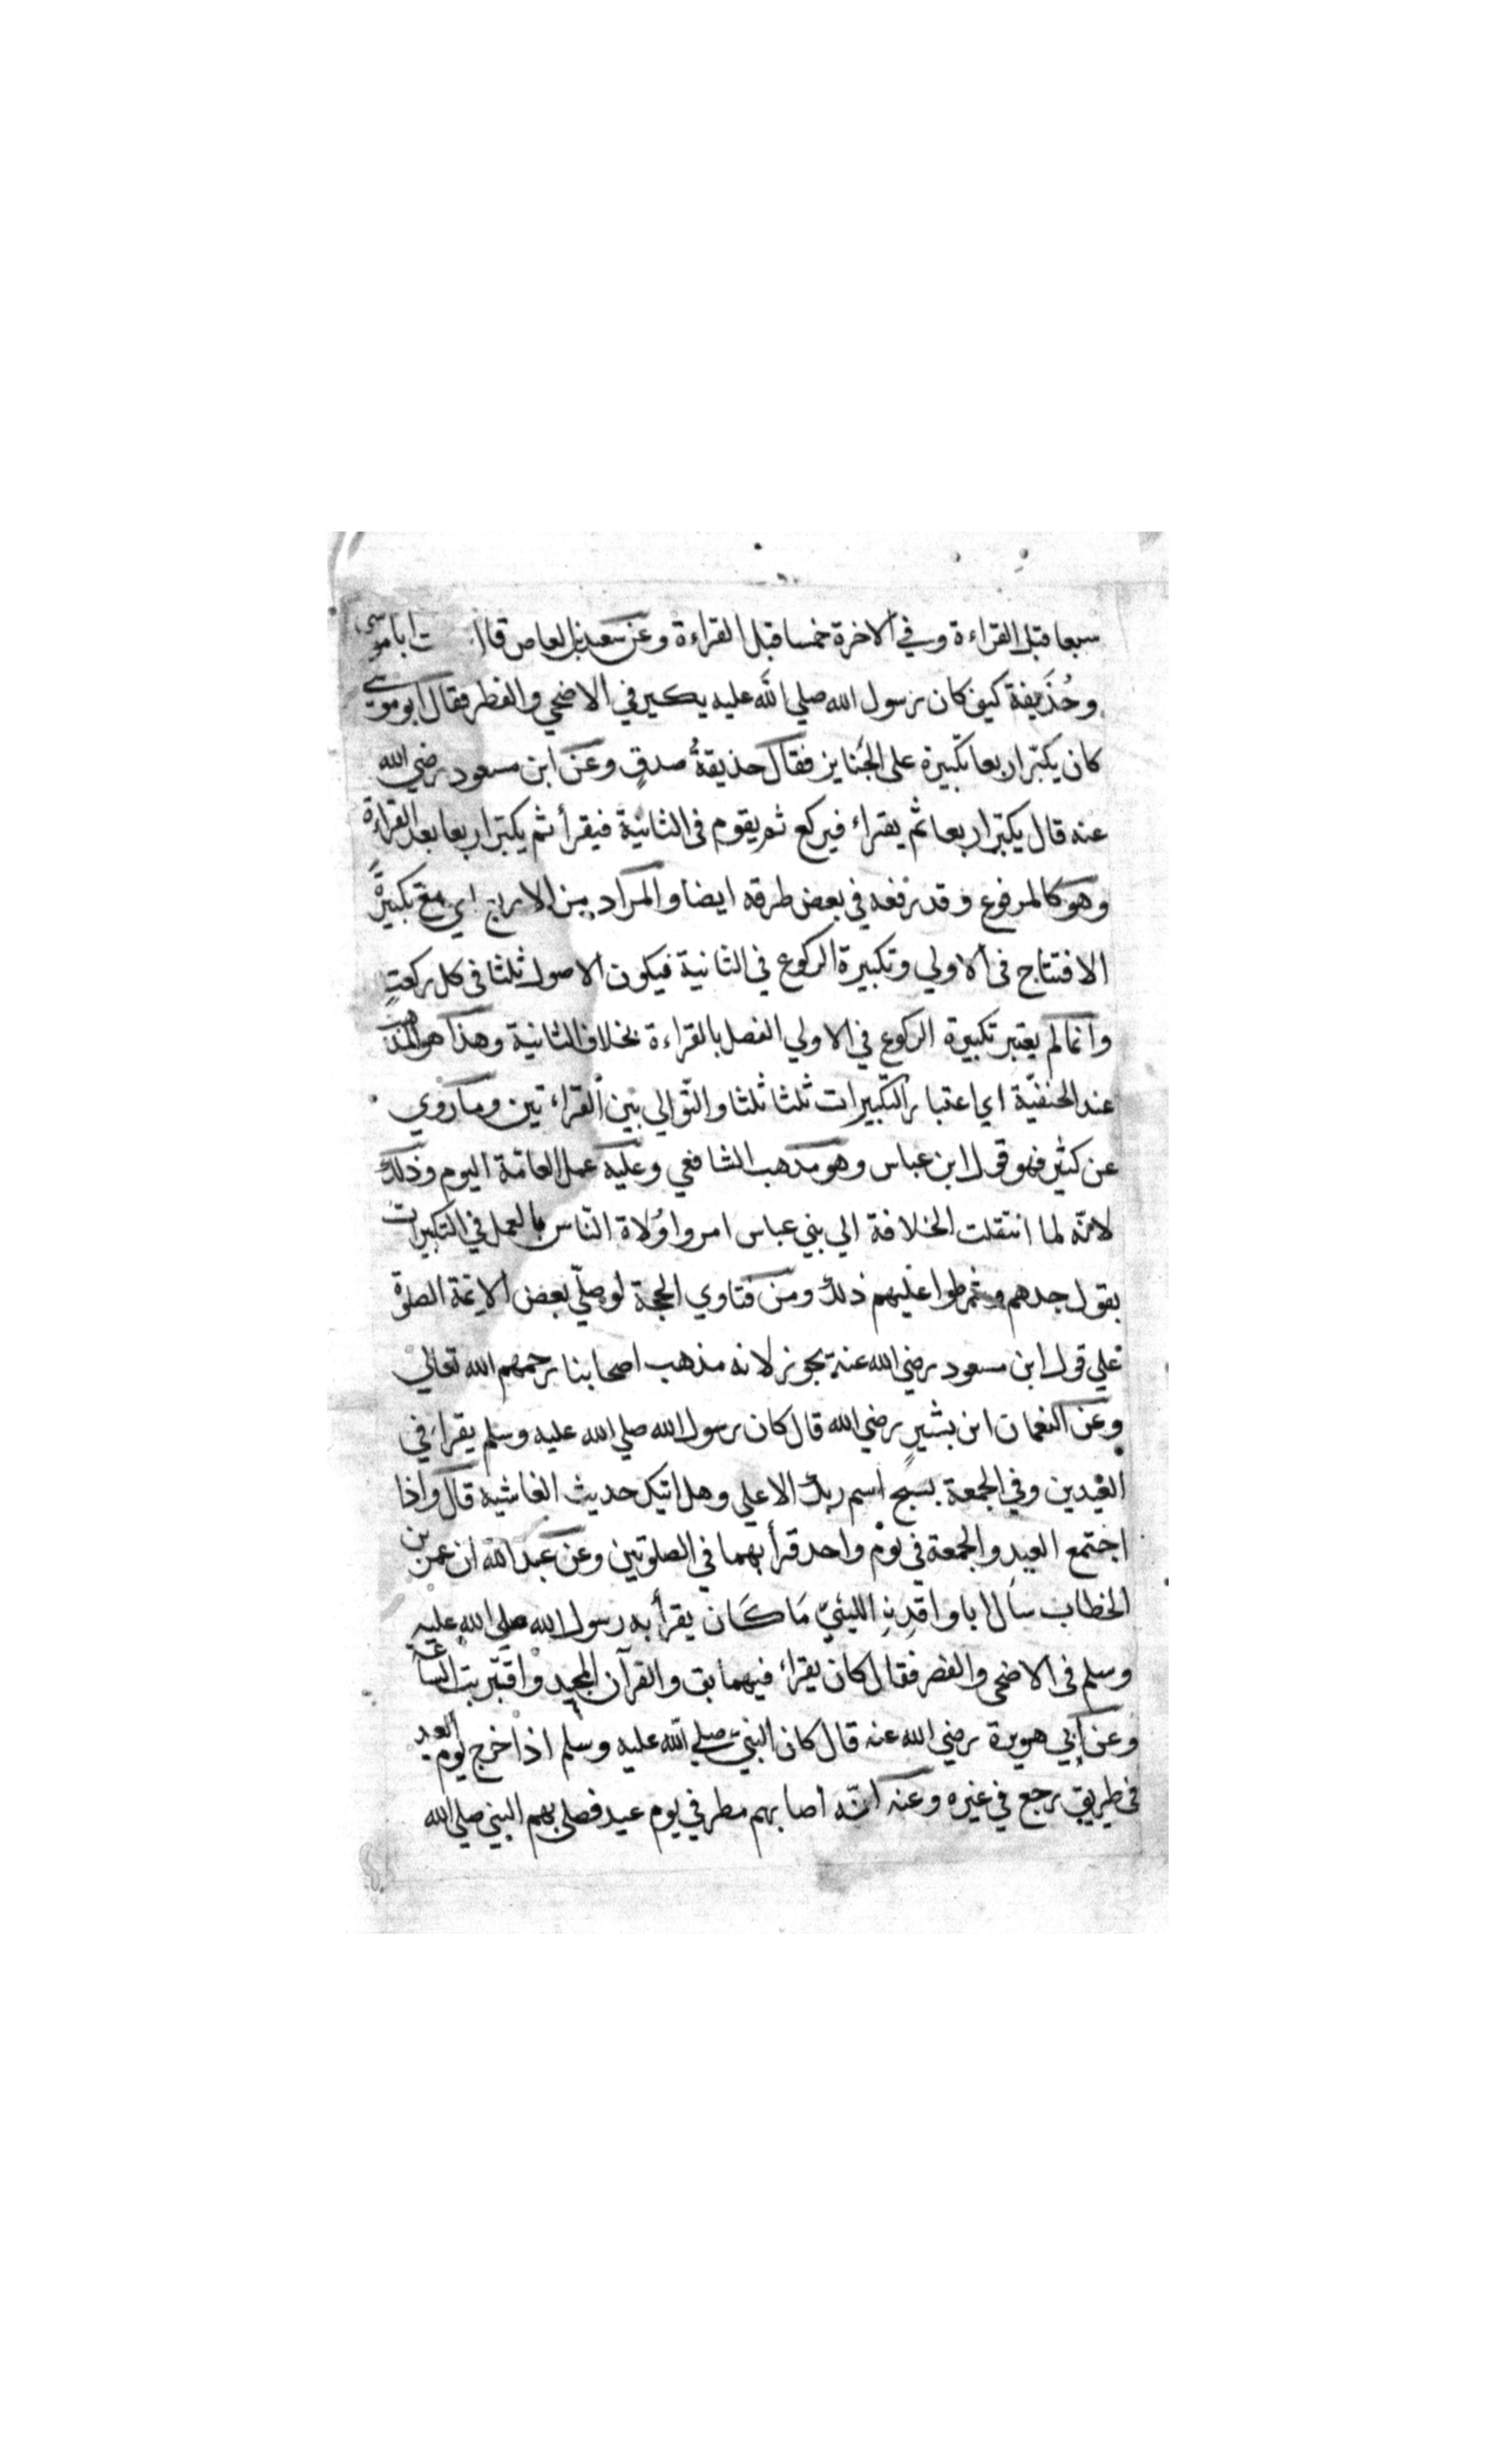 سبعا قبل القراءة وفي الاخرة خمسا قبل القراءة وعن سعيد بن العاص قال ابا موسى
وحُذَيفة كيف كان رسول الله صلي الله عليه يكبر في الاضحي والفطر فقال ابو موسي
كان يكبّر اربعا تكبيرة على الجنايز فقال حذيفةُ صدق وعن ابن مسعود رضي الله
عنه قال يكبّر اربعا ثم يقراء فيركع ثم يقوم فى الثانية فيقرأ ثم يكبّر اربعا بعد القراءة
وهو كالمرفوع وقد رفعه في بعض طرقه ايضا والمراد من الاربع اي مع تكبيرةً
الافتتاح فى الاولي وتكبيرة الركوع في الثانية فيكون الاصول ثلثا فى كل ركعتٍ
وانما لم يعتبر تكبيرة الركوع في الاولي الفصل بالقراءة بخلاف الثانية وهذا هو المذهب
عند الحنفيّة اي اعتبار التكبيرات ثلثا ثلثا والتّوالي بين القراءتين وما روي
عن كثير فهو قول ابن عباس وهو مذهب الشافعي وعليه عمل العامّة اليوم وذلك
لانّه لما انتقلت الخلافة الي بني عباس امروا وُلاة النّاس بالعمل في التكبيرات
بقول جدهم وشرطوا عليهم ذلك ومن فتاوي الحجة لو صلّي بعض الائمة الصلوة
علي قول ابن مسعود رضي الله عنه يجوز لانه مذهب اصحابنا رحمهم الله تعالي
وعن النعمان ابن بشيرٍ رضي الله قال كان رسول الله صلي الله عليه وسلم يقراء في
العيدين وفي الجمعة بسبح اسم ربك الاعلي وهل اتيك حديث الغاشيه قال واذا
اجتمع العيد والجمعة في يوم واحد قرأ بهما في الصلوتين وعن عبد الله ان عمر بن
الخطاب سأل ابا واقدٍ الليثيّ مَا كَان يقرأ به رسول الله صلي الله عليه
وسلم فى الاضحى والفطر فقال كان يقراء فيهما بق والقرآن المجيد واقتربت الساعة
وعن ابي هريرة رضي الله عنه قال كان النبيّ صلي الله عليه وسلم اذا خرج يوم العيد
فى طريقٍ رجع في غيره وعنه انّه اصابهم مطر في يوم عيد فصلى بهم النبي صلي الله